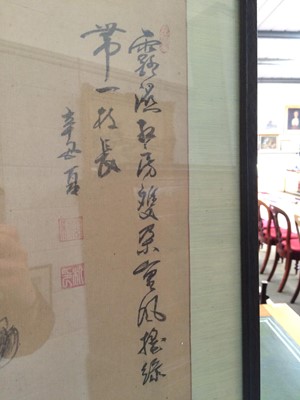 露濕紅房雙朵重風搖綠
帶一枝長
辛丑夏